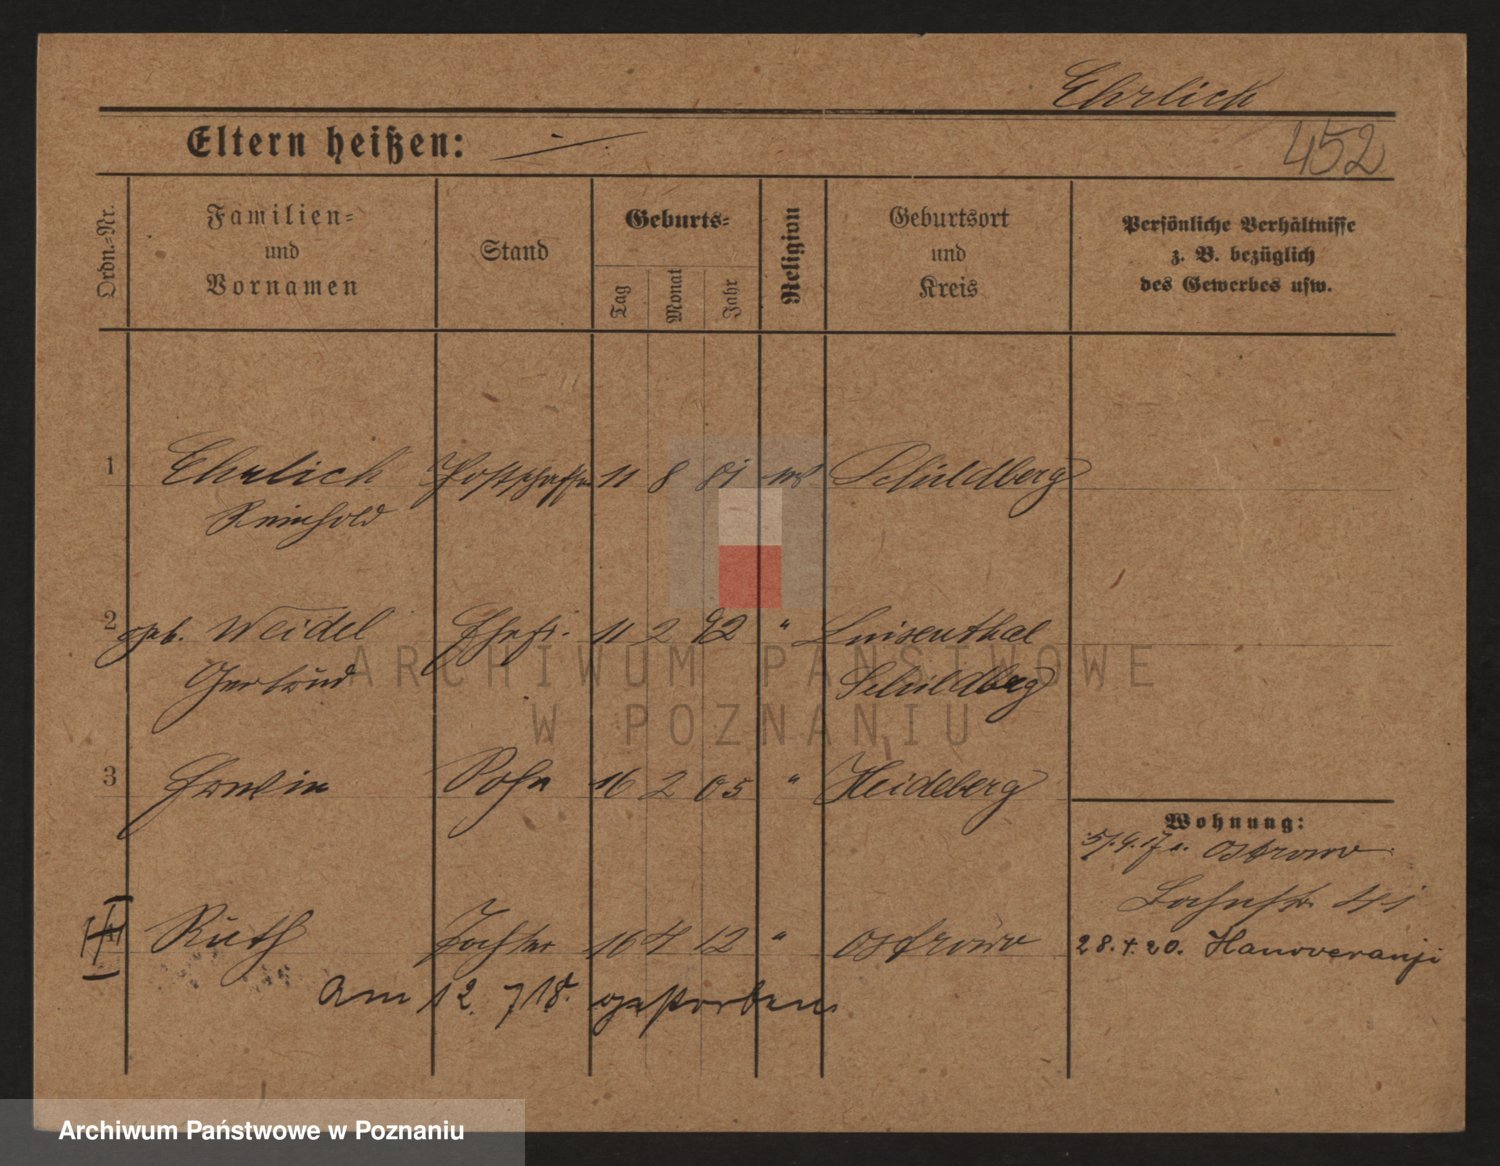 Ehrlich
Eltern heißen: —
452
Ordn.=Nr.
Familien=
und
Vornamen
Stand
Geburts=
Tag
Monat
Jahr
Religion
Geburtsort
und
Kreis
Persönliche Verhältnisse
z. B. bezüglich
des Gewerbes usw.
1 Ehrlich 11 8 81 Schildberg
Reinhold
2 geb. Weidel Ehefr. 11 2 " Luisenthal
Gertrud Schildberg
3 Erwin Sohn 16 2 05 " Heideberg
Wohnung:
Ostrowo
4 Ruth Tochter 16 4 12 " Ostrowo
28.4.20. Hanoveranji
am 12. 7 18. gestorben
ARCHIWUM PAŃSTWOWE
W POZNANIU
Archiwum Państwowe w Poznaniu